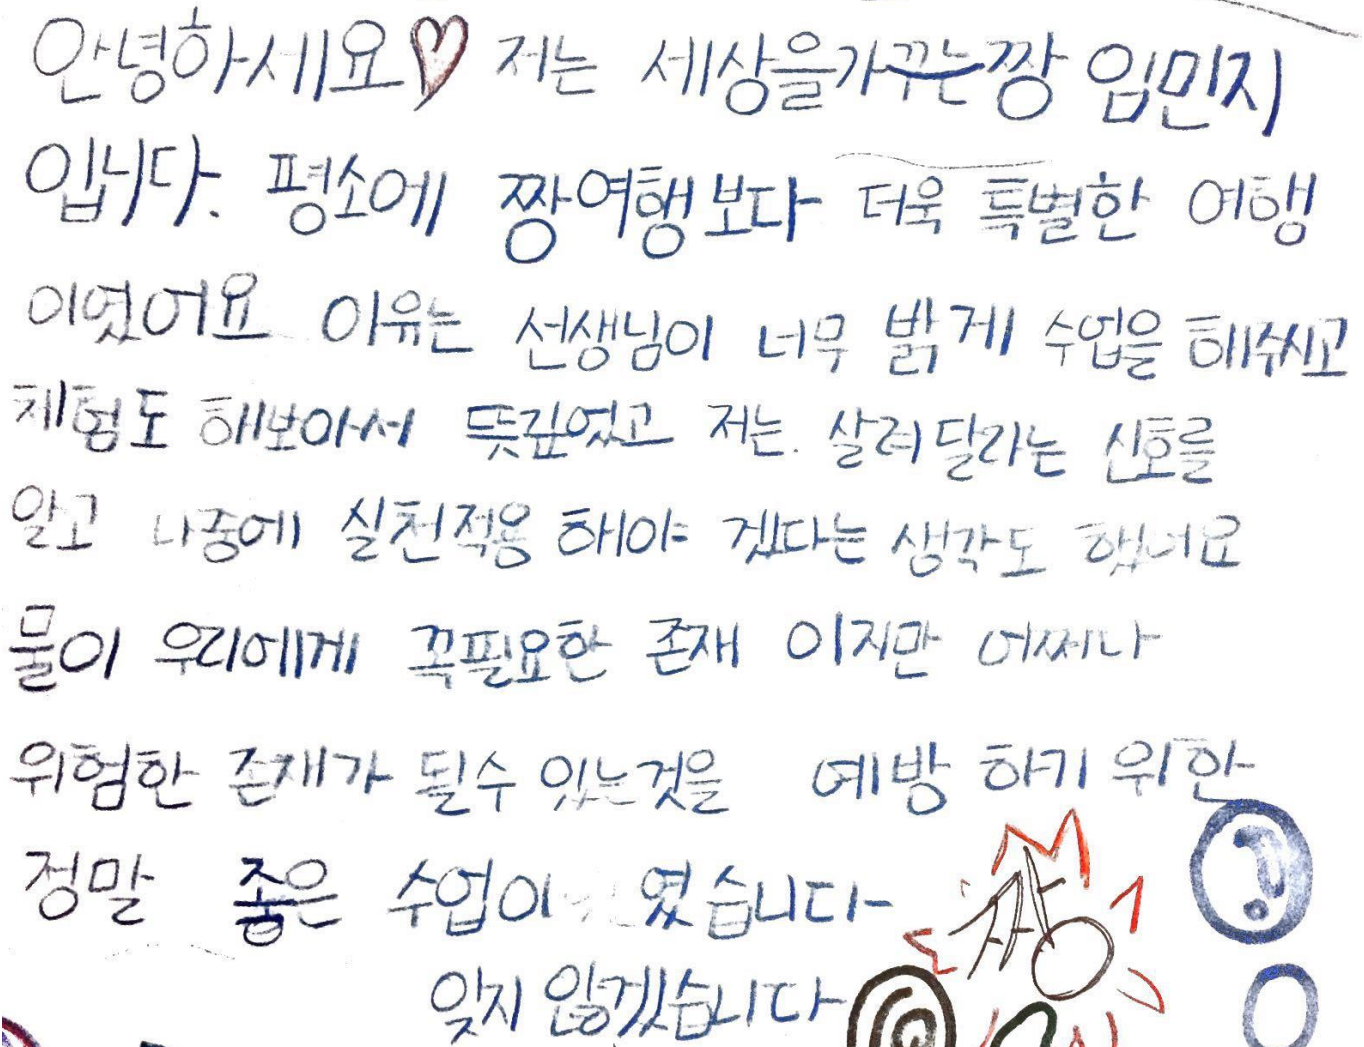 안녕하세요♡ 저는 세상을가꾸는짱 임민지
입니다. 평소에 짱여행보다 더욱 특별한 여행
이였어요 이유는 선생님이 너무 밝게 수업을 해주시고
체험도 해보아서 뜻깊었고 저는 살려달라는 신호를
알고 나중에 실천적용 해야 겠다는 생각도 했어요
물이 우리에게 꼭필요한 존재 이지만 어쩌나
위험한 존재가 될수 있는것을 예방 하기 위한
정말 좋은 수업이 였습니다
잊지 않겠습니다
짱